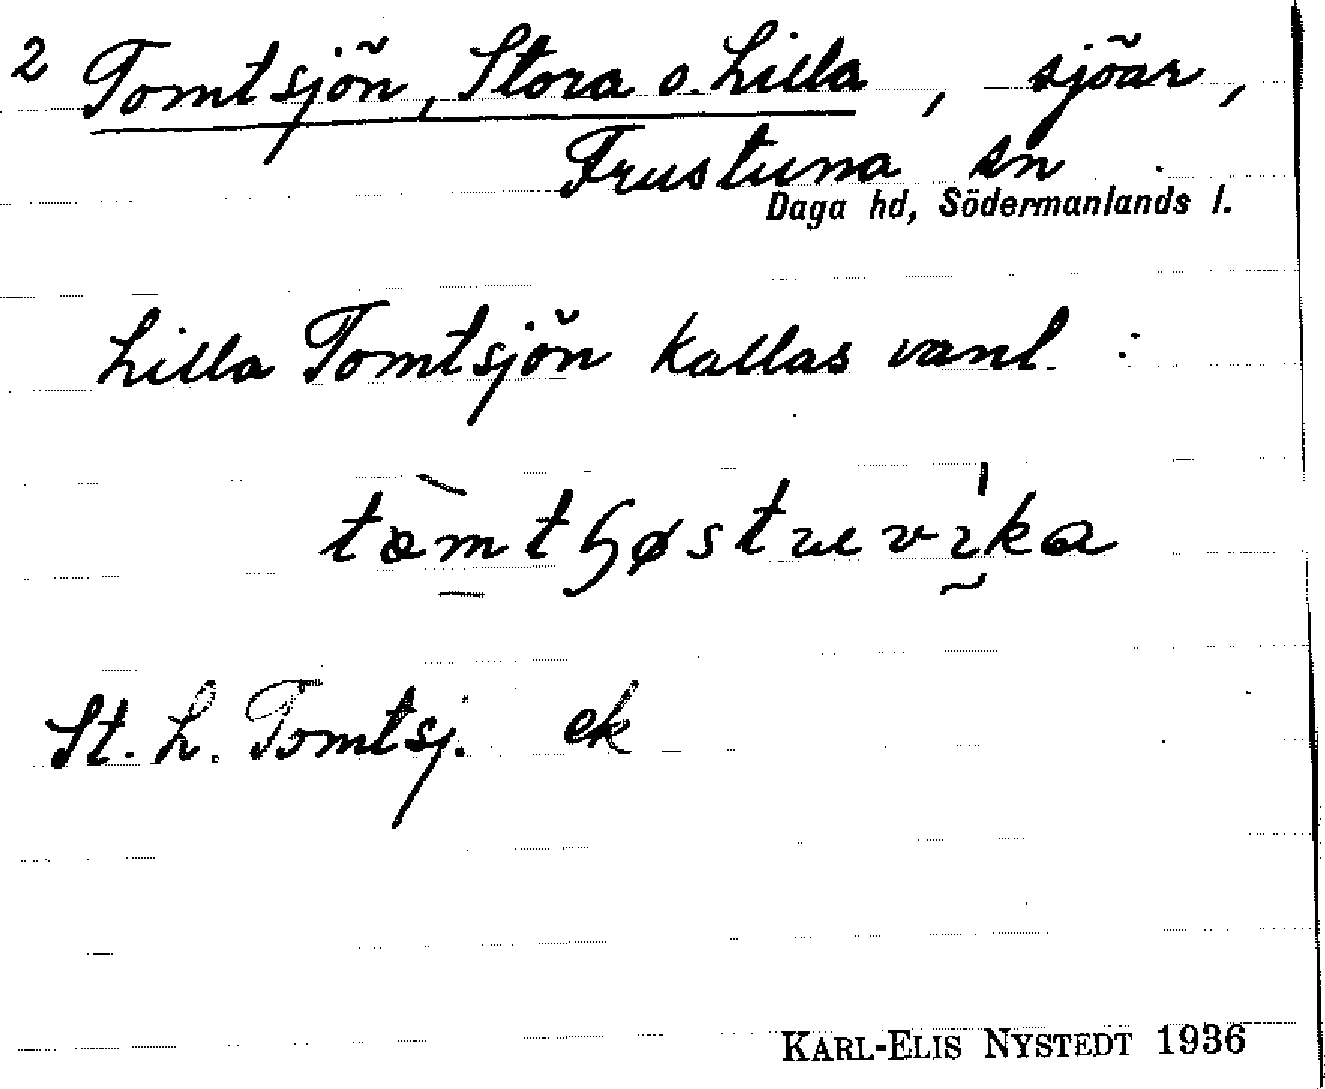 2 Tomtsjön, Stora o. Lilla, sjöar,
Frustuna sn
Daga hd, Södermanlands l.
Lilla Tomtsjön kallas vanl.:
St. L. Tomtsj. ek
KARL-ELIS NYSTEDT 1936